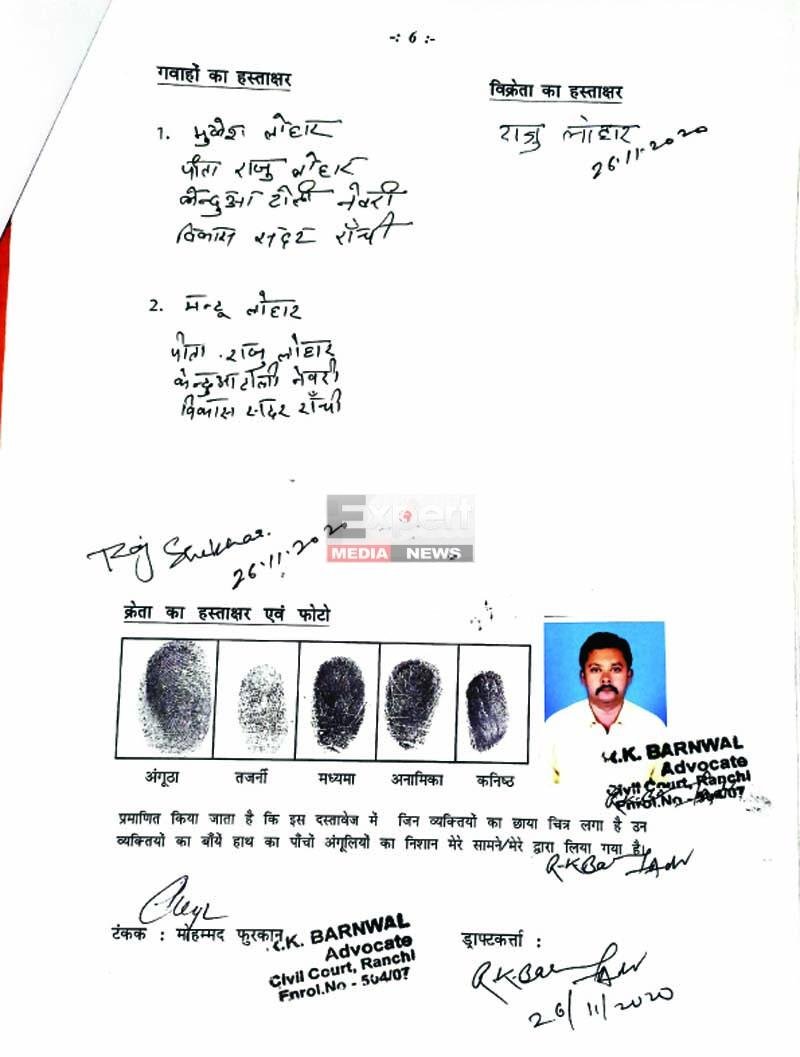 -: 6 :-
गवाहों का हस्ताक्षर
विक्रेता का हस्ताक्षर
1. मुकेश लोहार
पीता राजु लोहार
केन्दुआ टोली नेवरी
विकास सदर राँची
राजु लोहार
26.11.2020
2. मन्टू लोहार
पीता . राजु लोहार
केन्दुआटोली नेवरी
विकास सदर राँची
Expert
MEDIA NEWS
Raj Shekhar.
26.11.2020
क्रेता का हस्ताक्षर एवं फोटो
अंगूठा तर्जनी मध्यमा अनामिका कनिष्ठ
.K. BARNWAL
Advocate
Civil Court, Ranchi
Enrol.No - 504/07
प्रमाणित किया जाता है कि इस दस्तावेज में जिन व्यक्तियों का छाया चित्र लगा है उन
व्यक्तियों का बाँये हाथ का पाँचों अंगूलियों का निशान मेरे सामने/मेरे द्वारा लिया गया है।
R.K.Bar Adv
टंकक : मोहम्मद फुरकान
.K. BARNWAL
Advocate
Civil Court, Ranchi
Enrol.No - 504/07
ड्राफ्टकर्त्ता :
R.K.Bar Adv
26/11/2020